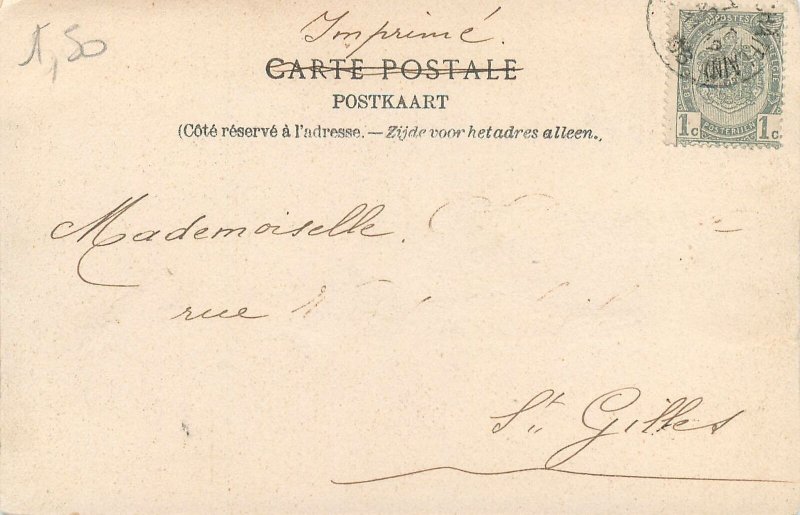 1,50
Imprimé.
CARTE POSTALE
POSTKAART
(Côté réservé à l'adresse. — Zijde voor het adres alleen.,
POSTES
1c POSTERIJEN 1c
Mademoiselle.
rue
St. Gilles